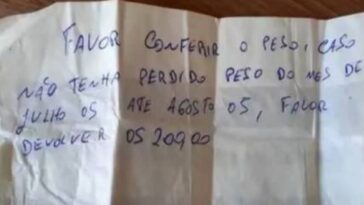 FAVOR CONFERIR O PESO, CASO
NÃO TENHA PERDIDO PESO DO MES DE
JULHO 05 ATE AGOSTO 05, FAVOR
DEVOLVER OS 200,00